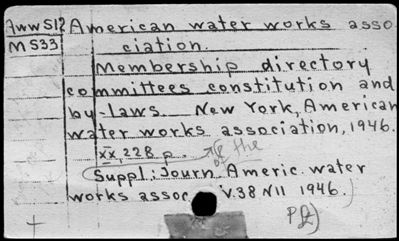 AwwS12 American water works asso
MS33 ciation.
Membership directory
committees constitution and
by-laws. New York, American
water works association, 1946.
xx, 228 p. of the
Suppl.: Journ. Americ. water
works assoc. V.38 N11 1946.)